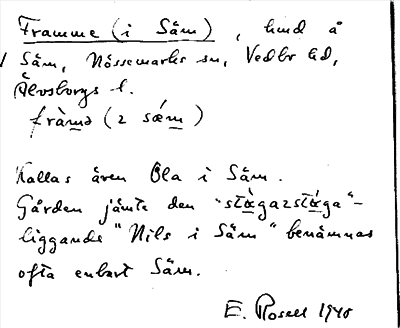 Framme (i Säm), hmd å
Säm, Nössemarks sn, Vedbo hd,
Älvsborgs l.
fràmə (i sǽm)
Kallas även Ola i Säm.
Gården jämte den "stàgazstǻga"-
liggande "Nils i Säm" benämnas
ofta enbart Säm.
E. Rosell 1940